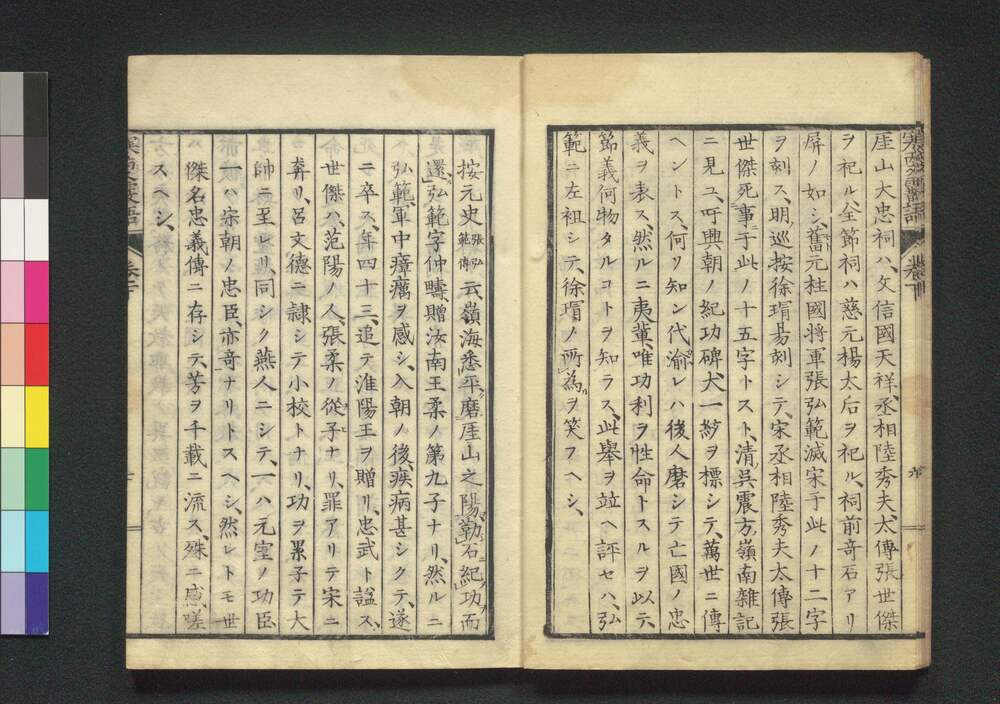 厓山大忠祠ハ、文信國天祥、丞相陸秀夫、太傳張世傑
ヲ祀ル、全節祠ハ慈元楊太后ヲ祀ル、祠前奇石アリ
屏ノ如シ、舊元柱國將軍張弘範滅宋于此ノ十二字
ヲ刻ス、明巡按徐瑁昜刻シテ、宋丞相陸秀夫太傳張
世傑死事于此ノ十五字トスト、清吳震方嶺南雜記
ニ見ユ、吁興朝ノ紀功碑、犬一紡ヲ標シテ、萬世ニ傳
ヘントス、何ソ知ン代渝レハ後人磨シテ亡國ノ忠
義ヲ表ス、然ルニ夷輩、唯功利ヲ性命トスルヲ以テ、
節義何物タルコトヲ知ラス、此舉ヲ竝ヘ評セハ、弘
範ニ左袒シテ、徐瑁ノ所為ヲ笑フヘシ、
按元史張弘範傳云、嶺海悉平、磨厓山之陽、勒石紀功而
還、弘範字仲疇、贈汝南王柔ノ第九子ナリ、然ルニ
弘範、軍中瘴癘ヲ感シ、入朝ノ後、疾病甚シクテ、遂
ニ卒ス、年四十三、追テ淮陽王ヲ贈リ、忠武ト諡ス、
世傑ハ、范陽ノ人、張柔ノ從子ナリ、罪アリテ宋ニ
奔リ、呂文德ニ隷シテ小校トナリ、功ヲ累子テ大
帥ニ至レリ、同シク燕人ニシテ、一ハ元室ノ功臣
一ハ宗朝ノ忠臣、亦奇ナリトスヘシ、然レトモ世
ハ傑名忠義傳ニ存シテ、芳ヲ千載ニ流ス、殊ニ感嗟
スヘシ、